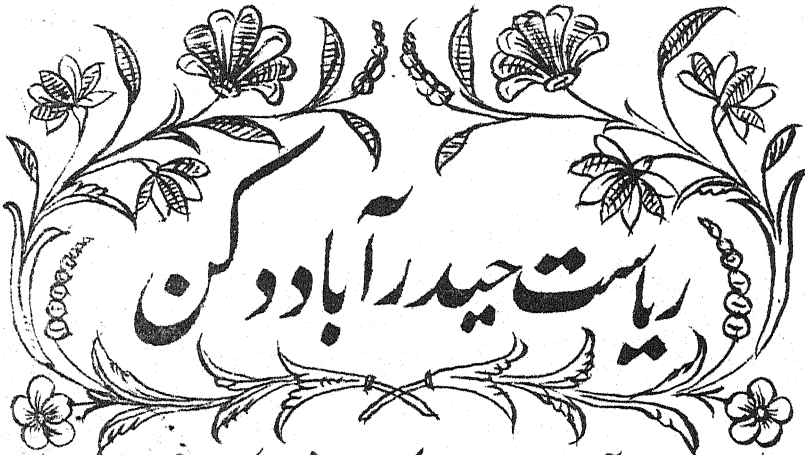 ریاست حیدرآباد دکن